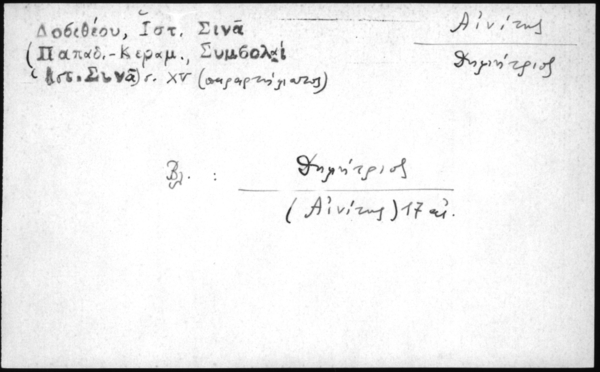 Δοσιθέου, Ἱστ. Σινᾶ
(Παπαδ.-Κεραμ., Συμβολαί
Ἱστ. Σινᾶ) σ. XV (παραρτήματος)
Αἰνίτης
Δημήτριος
Βλ. :
Δημήτριος
(Αἰνίτης) 17 αἰ.